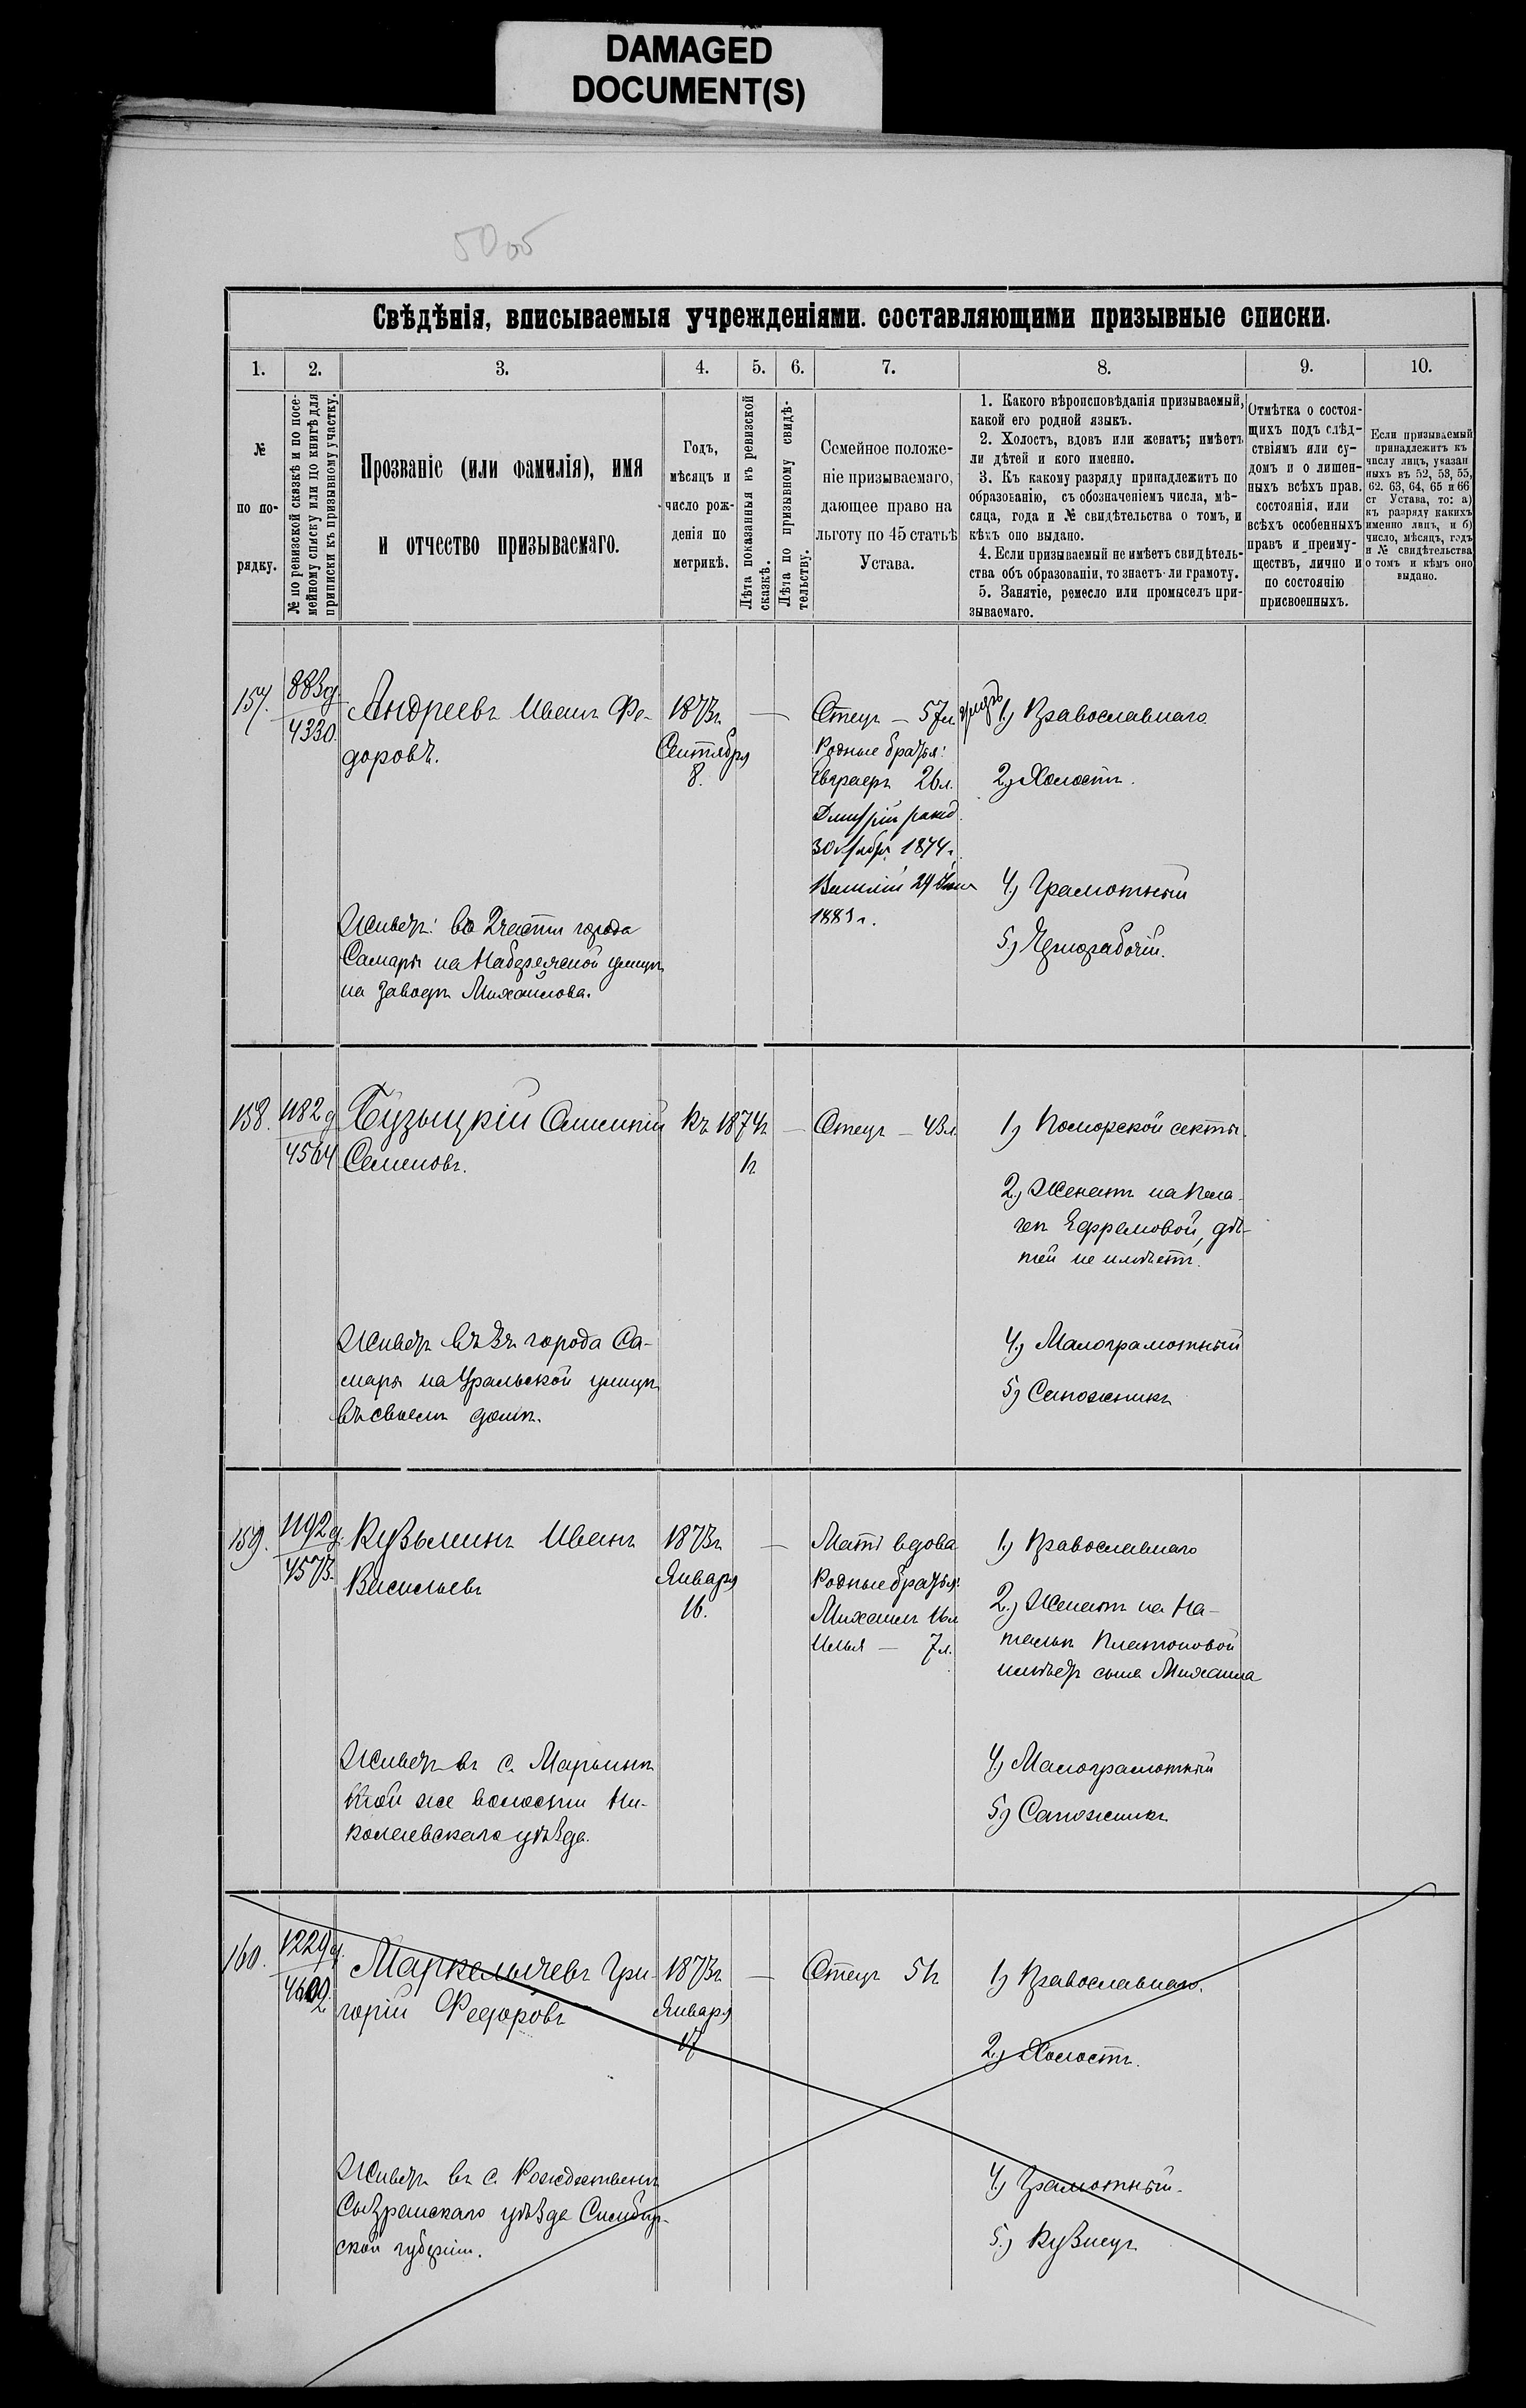 DAMAGED
DOCUMENT(S)
Свѣдѣнія, вписываемыя учрежденіями. составляющими призывные списки.
1. 2. 3. 4. 5. 6. 7. 8. 9. 10.
№
по по-
рядку.
№ по ревизской сказкѣ и по посе-
мейному списку или по книгѣ для
приписки къ призывному участку.
Прозваніе (или фамилія), имя
и отчество призываемаго.
Годъ,
мѣсяцъ и
число рож-
денія по
метрикѣ.
Лѣта показанныя къ ревизской
сказкѣ.
Лѣта по призывному свидѣ-
тельству.
Семейное положе-
ніе призываемаго,
дающее право на
льготу по 45 статьѣ
Устава.
1. Какого вѣроисповѣданія призываемый,
какой его родной языкъ.
2. Холостъ, вдовъ или женатъ; имѣетъ
ли дѣтей и кого именно.
3. Къ какому разряду принадлежитъ по
образованію, съ обозначеніемъ числа, мѣ-
сяца, года и № свидѣтельства о томъ, и
кѣмъ оно выдано.
4. Если призываемый не имѣетъ свидѣтель-
ства объ образованіи, то знаетъ ли грамоту.
5. Занятіе, ремесло или промыселъ при-
зываемаго.
Отмѣтка о состоя-
щихъ подъ слѣд-
ствіямъ или су-
домъ и о лишен-
ныхъ всѣхъ прав.
состоянія, или
всѣхъ особенныхъ
правъ и преиму-
ществъ, лично и
по состоянію
присвоенныхъ.
Если призываемый
принадлежитъ къ
числу лицъ, указан
ныхъ въ 52, 53, 55,
62. 63, 64, 65 и 66
ст Устава, то: а)
къ разряду какихъ
именно лицъ, и б)
число, мѣсяцъ, годъ
и № свидѣтельства
о томъ и кѣмъ оно
выдано.
157.
883 д
4330.
Андреевъ Иванъ Фе-
доровъ.
Живетъ: во 2 части города
Самары на Набережной улицѣ
на заводѣ Михайлова.
1873г.
Сентября
8.
Отецъ — 57л
Родные братья:
26л.
Дмитрій
30 октября 1874г.
Василій 29
1883г.
1) Православнаго
2) Холостъ.
4) Грамотный
5) Чернорабочій.
158.
1182 д
4564
Бузыцкій
Семеновъ.
Живетъ въ 3ч города Са-
мары на Уральской улицѣ
въ своемъ домѣ.
Къ 1874г
Отецъ — 43л
1) Поморской секты.
2) Женатъ на Пела-
геѣ Ефремовой, дѣ-
тей не имѣетъ.
4) Малограмотный
5) Сапожникъ
159.
1192 д.
4573.
Кузьминъ Иванъ
Васильевъ
Живетъ въ с. Марьинкѣ
той же волости Ни-
колаевскаго уѣзда.
1873г
Января
16.
Мать вдова
Родные братья:
Михаилъ 16л
Илья — 7л.
1) Православнаго
2) Женатъ на На-
тальѣ Платоновой
имѣетъ сына Михаила
4) Малограмотный
5) Сапожникъ
160.
1229 д.
Маркелычевъ Гри-
горій Федоровъ
Живетъ въ с. Рождественѣ
Сызранскаго уѣзда Симбир-
ской губерніи.
1873г
Января
17
Отецъ 51
1) Православнаго.
2) Холостъ.
4) Грамотный.
5) Кузнецъ